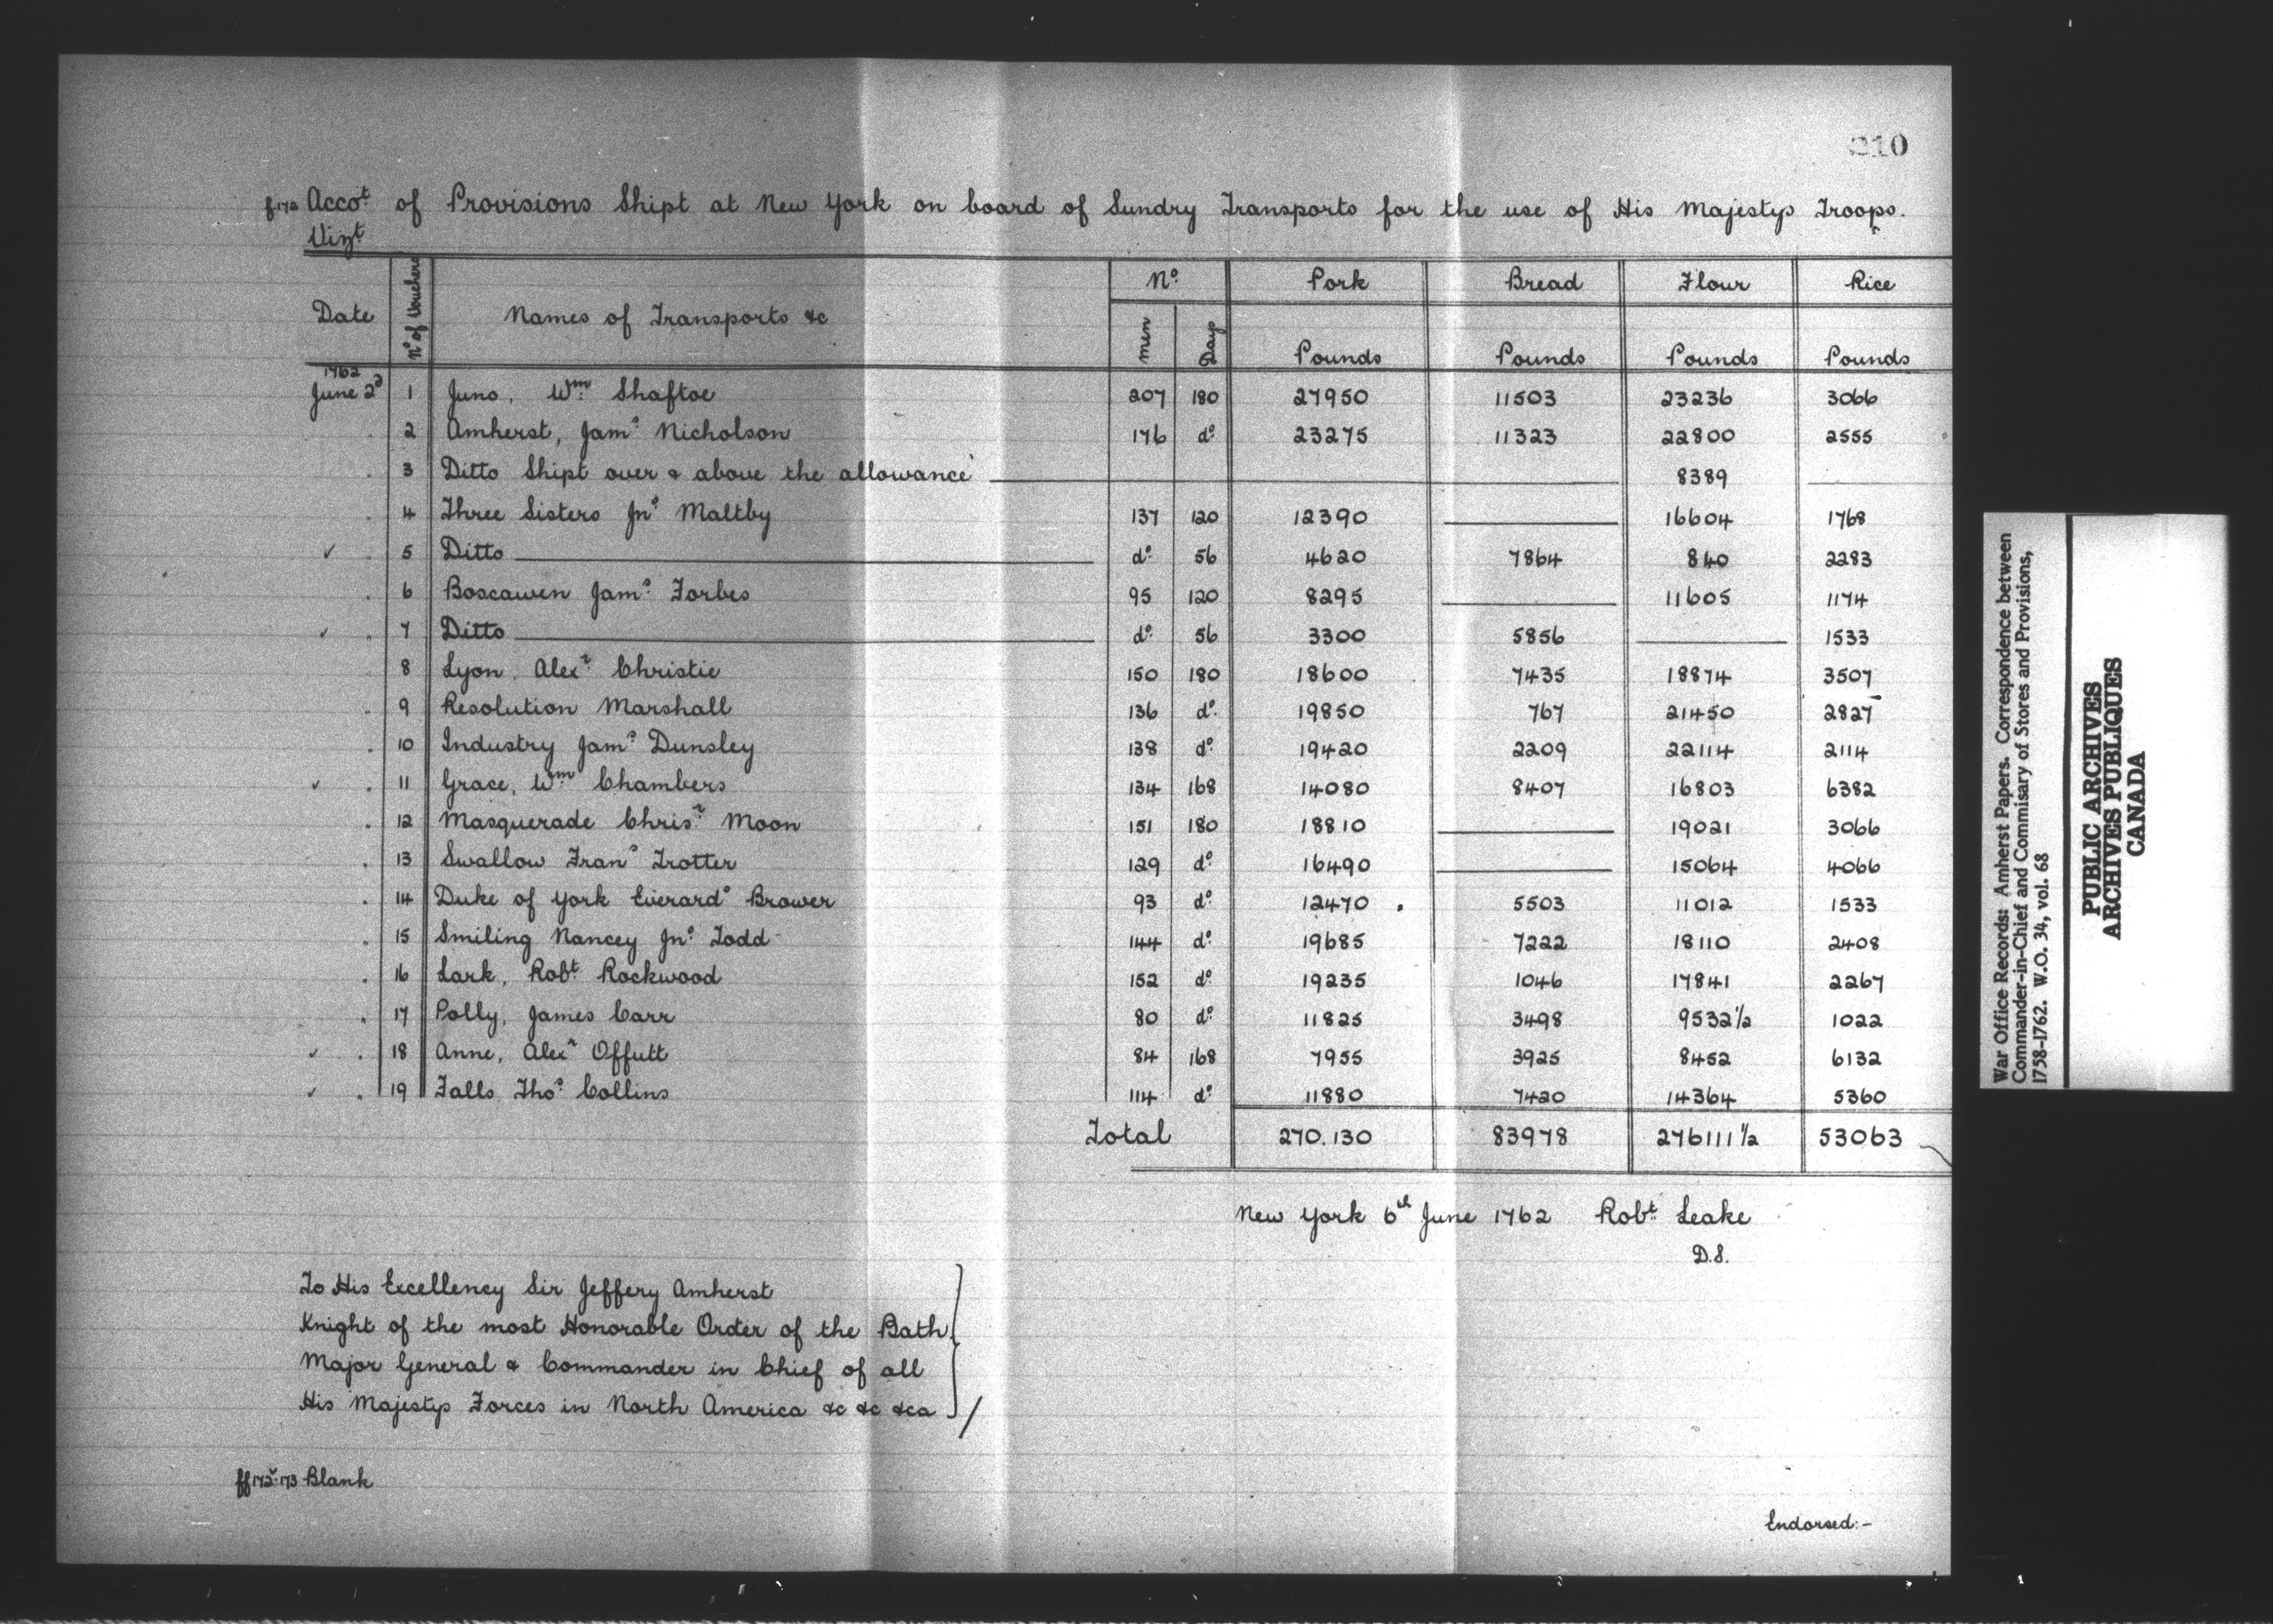 210
f172 Accot of Provisions Shipt at New York on board of Sundry Transports for the use of His Majestys Troops.
Vizt
Date | No of Vouchers | Names of Transports &c | No men | Days | Pork Pounds | Bread Pounds | Flour Pounds | Rice Pounds
1762
June 2d | 1 | Juno, Wm Shaftoe | 207 | 180 | 27950 | 11503 | 23236 | 3066
. | 2 | Amherst, Jams Nicholson | 176 | do | 23275 | 11323 | 22800 | 2555
. | 3 | Ditto Shipt over & above the allowance | — | — | — | — | 8389 | —
. | 4 | Three Sisters Jno Maltby | 137 | 120 | 12390 | — | 16604 | 1768
✓ . | 5 | Ditto — | do | 56 | 4620 | 7864 | 840 | 2283
. | 6 | Boscawen Jams Forbes | 95 | 120 | 8295 | — | 11605 | 1174
✓ . | 7 | Ditto — | do | 56 | 3300 | 5856 | — | 1533
8 | Lyon. Alexr Christie | 150 | 180 | 18600 | 7435 | 18874 | 3507
. | 9 | Resolution Marshall | 136 | do | 19850 | 767 | 21450 | 2827
. | 10 | Industry Jams Dunsley | 138 | do | 19420 | 2209 | 22114 | 2114
✓ . | 11 | Grace, Wm Chambers | 134 | 168 | 14080 | 8407 | 16803 | 6382
. | 12 | Masquerade Chrisr Moon | 151 | 180 | 18810 | — | 19021 | 3066
. | 13 | Swallow Frans Trotter | 129 | do | 16490 | — | 15064 | 4066
. | 14 | Duke of York Everardo Brower | 93 | do | 12470 . | 5503 | 11012 | 1533
. | 15 | Smiling Nancey Jno Todd | 144 | do | 19685 | 7222 | 18110 | 2408
. | 16 | Lark, Robt Rockwood | 152 | do | 19235 | 1046 | 17841 | 2267
. | 17 | Polly, James Carr | 80 | do | 11825 | 3498 | 9532 1/2 | 1022
✓ . | 18 | Anne, Alexr Offutt | 84 | 168 | 7955 | 3925 | 8452 | 6132
✓ . | 19 | Falls Thos Collins | 114 | do | 11880 | 7420 | 14364 | 5360
Total | 270.130 | 83978 | 276111 1/2 | 53063
New York 6th June 1762 Robt Leake
D.S.
To His Excellency Sir Jeffery Amherst
Knight of the most Honorable Order of the Bath
Major General & Commander in Chief of all
His Majestys Forces in North America &c &c &ca
ff172v-173 Blank
Endorsed:-
War Office Records: Amherst Papers. Correspondence between
Commander-in-Chief and Commisary of Stores and Provisions,
1758-1762. W.O. 34, vol. 68
PUBLIC ARCHIVES
ARCHIVES PUBLIQUES
CANADA